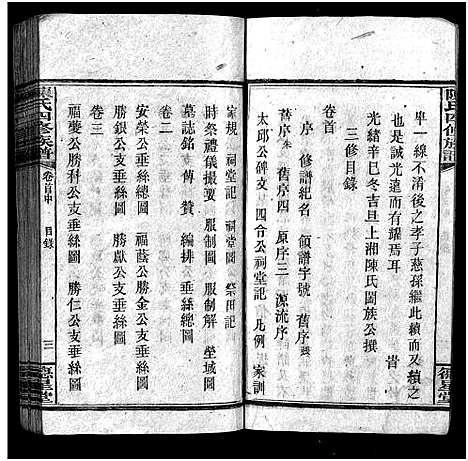 陳氏四修族譜
卑一線不淆後之孝子慈孫繼此續而續之
是誠光遠而有耀焉耳 旹
光緒辛巳冬吉旦上湘陳氏闔族公撰
三修目錄
卷首
序 修譜紀名 領譜字號 舊序
舊序 舊序四 原序三 源流序
太邱公碑文 四令公祠堂記 凡例 家訓
德星堂
家規 祠堂記 祠堂圖 祭田記
時祭禮儀撮要 服制圖 服制解 塋域圖
墓誌銘 傳 贊 編排 垂絲圖
卷二
安榮公支垂絲總圖 福公勝金公支垂絲圖
勝銀公支垂絲圖 勝獻公支垂絲圖
卷三
福公勝科公支垂絲圖 勝仁公支垂絲圖
陳氏四修族譜 卷首中 目錄 三 德星堂